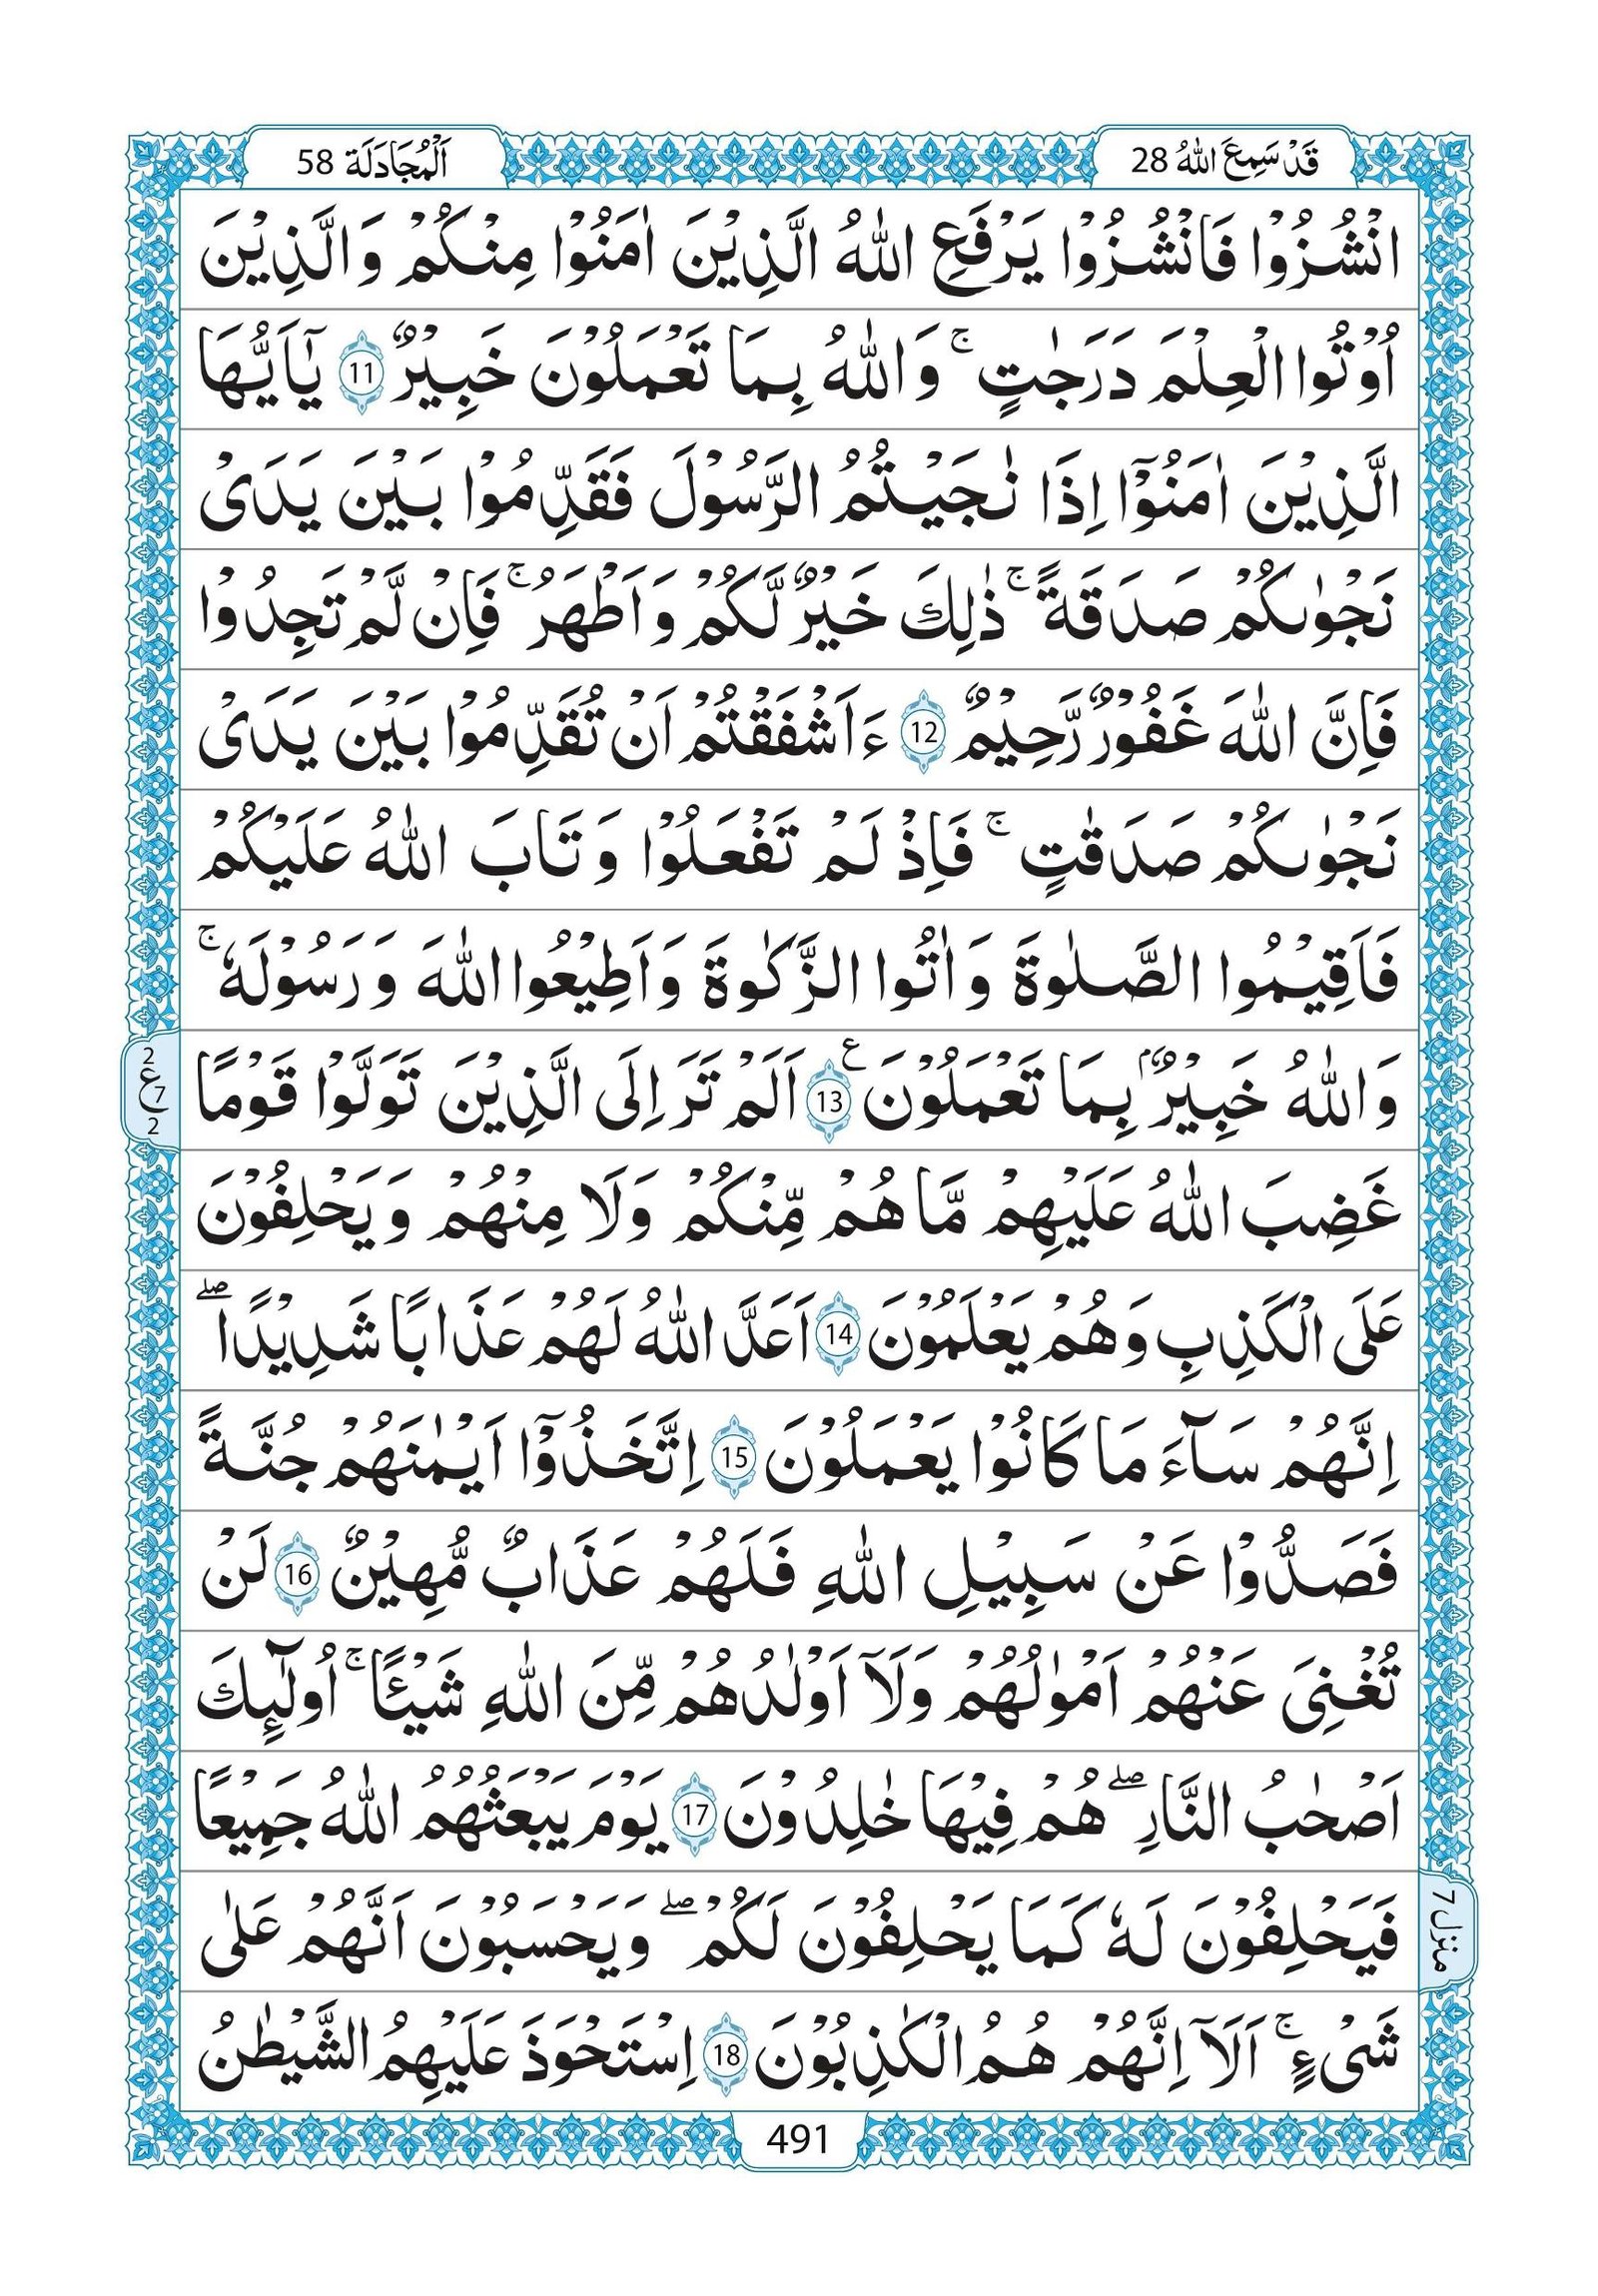 قَدْ سَمِعَ اللهُ 28
اَلْمُجَادَلَة 58
انْشُزُوْا فَانْشُزُوْا يَرْفَعِ اللّٰهُ الَّذِيْنَ اٰمَنُوْا مِنْكُمْ وَالَّذِيْنَ
اُوْتُوا الْعِلْمَ دَرَجٰتٍ ۚ وَاللّٰهُ بِمَا تَعْمَلُوْنَ خَبِيْرٌ 11 يٰٓاَيُّهَا
الَّذِيْنَ اٰمَنُوْٓا اِذَا نٰجَيْتُمُ الرَّسُوْلَ فَقَدِّمُوْا بَيْنَ يَدَىْ
نَجْوٰىكُمْ صَدَقَةً ۚ ذٰلِكَ خَيْرٌ لَّكُمْ وَاَطْهَرُ ۚ فَاِنْ لَّمْ تَجِدُوْا
فَاِنَّ اللّٰهَ غَفُوْرٌ رَّحِيْمٌ 12 ءَاَشْفَقْتُمْ اَنْ تُقَدِّمُوْا بَيْنَ يَدَىْ
نَجْوٰىكُمْ صَدَقٰتٍ ۚ فَاِذْ لَمْ تَفْعَلُوْا وَتَابَ اللّٰهُ عَلَيْكُمْ
فَاَقِيْمُوا الصَّلٰوةَ وَاٰتُوا الزَّكٰوةَ وَاَطِيْعُوا اللّٰهَ وَرَسُوْلَهٗ ۚ
وَاللّٰهُ خَبِيْرٌۢ بِمَا تَعْمَلُوْنَ ع 13 اَلَمْ تَرَ اِلَى الَّذِيْنَ تَوَلَّوْا قَوْمًا
2 ع 7 2
غَضِبَ اللّٰهُ عَلَيْهِمْ مَّا هُمْ مِّنْكُمْ وَلَا مِنْهُمْ وَيَحْلِفُوْنَ
عَلَى الْكَذِبِ وَهُمْ يَعْلَمُوْنَ 14 اَعَدَّ اللّٰهُ لَهُمْ عَذَابًا شَدِيْدًا ۖ
اِنَّهُمْ سَآءَ مَا كَانُوْا يَعْمَلُوْنَ 15 اِتَّخَذُوْٓا اَيْمٰنَهُمْ جُنَّةً
فَصَدُّوْا عَنْ سَبِيْلِ اللّٰهِ فَلَهُمْ عَذَابٌ مُّهِيْنٌ 16 لَنْ
تُغْنِىَ عَنْهُمْ اَمْوٰلُهُمْ وَلَآ اَوْلٰدُهُمْ مِّنَ اللّٰهِ شَيْـًٔا ۚ اُولٰٓئِكَ
اَصْحٰبُ النَّارِ ۖ هُمْ فِيْهَا خٰلِدُوْنَ 17 يَوْمَ يَبْعَثُهُمُ اللّٰهُ جَمِيْعًا
فَيَحْلِفُوْنَ لَهٗ كَمَا يَحْلِفُوْنَ لَكُمْ ۖ وَيَحْسَبُوْنَ اَنَّهُمْ عَلٰى
منزل 7
شَىْءٍ ۚ اَلَآ اِنَّهُمْ هُمُ الْكٰذِبُوْنَ 18 اِسْتَحْوَذَ عَلَيْهِمُ الشَّيْطٰنُ
491